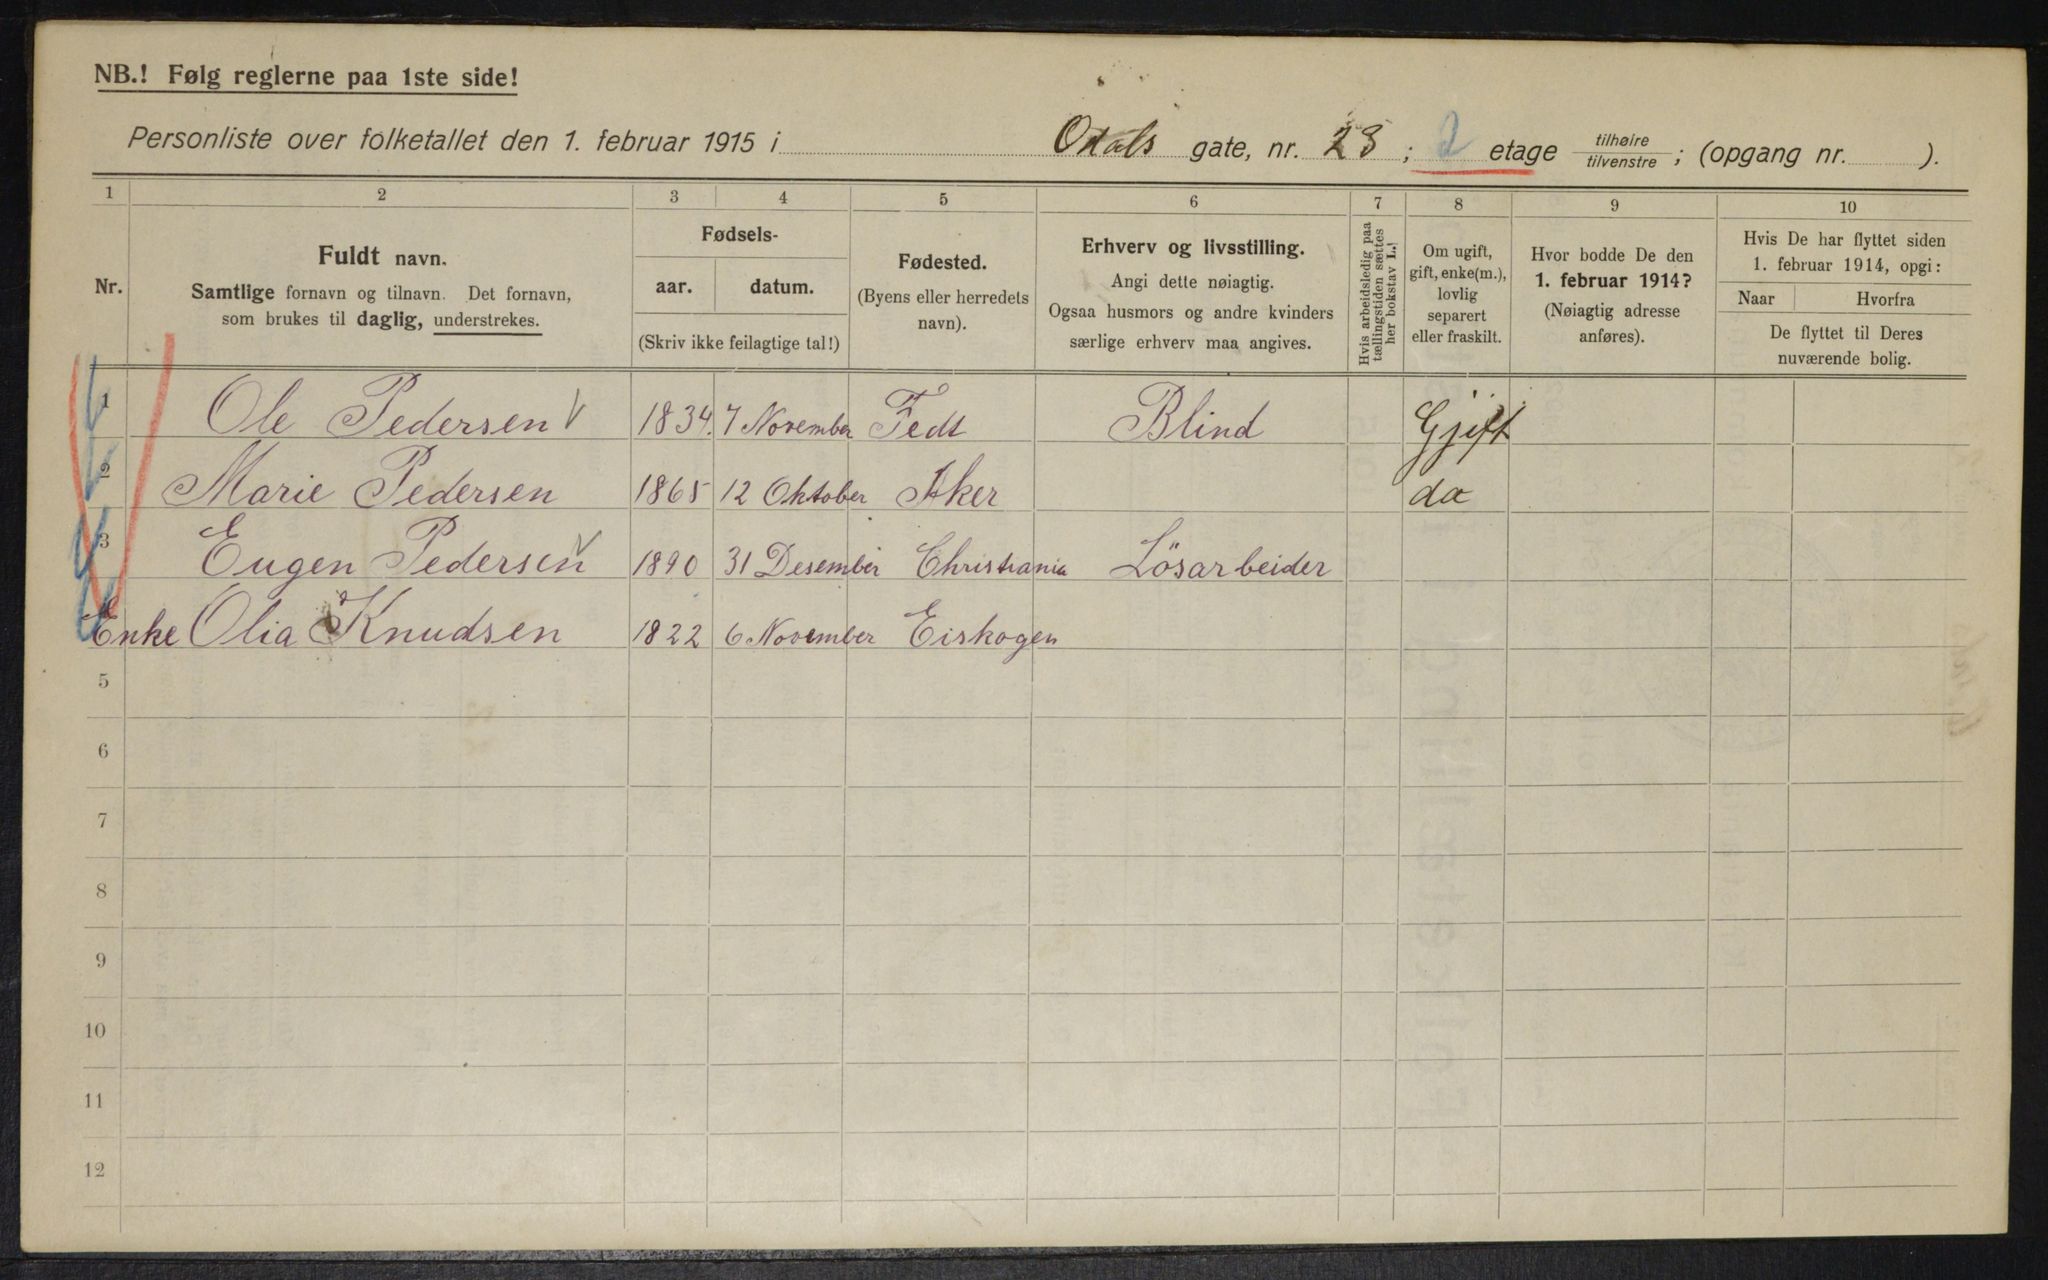 NB.! Følg reglerne paa 1ste side!
Personliste over folketallet den 1. februar 1915 i Odals gate, nr. 23 ; 2 etage tilhøire/tilvenstre ; (opgang nr. ).
1 2 3 4 5 6 7 8 9 10
Nr.
Fuldt navn.
Samtlige fornavn og tilnavn. Det fornavn,
som brukes til daglig, understrekes.
Fødsels-
aar. datum.
(Skriv ikke feilagtige tal!)
Fødested.
(Byens eller herredets
navn).
Erhverv og livsstilling.
Angi dette nøiagtig.
Ogsaa husmors og andre kvinders
særlige erhverv maa angives.
Hvis arbeidsledig paa
tællingstiden sættes
her bokstav L.!
Om ugift,
gift, enke(m.),
lovlig
separert
eller fraskilt.
Hvor bodde De den
1. februar 1914?
(Nøiagtig adresse
anføres).
Hvis De har flyttet siden
1. februar 1914, opgi:
Naar Hvorfra
De flyttet til Deres
nuværende bolig.
1 Ole Pedersen 1834. 7 November Fedt Blind Gjift
2 Marie Pedersen 1865 12 Oktober Aker da
3 Eugen Pedersen 1890 31 Desember Christiania Lösarbeider
Enke Olia Knudsen 1822 6 November Eiskogen
5
6
7
8
9
10
11
12